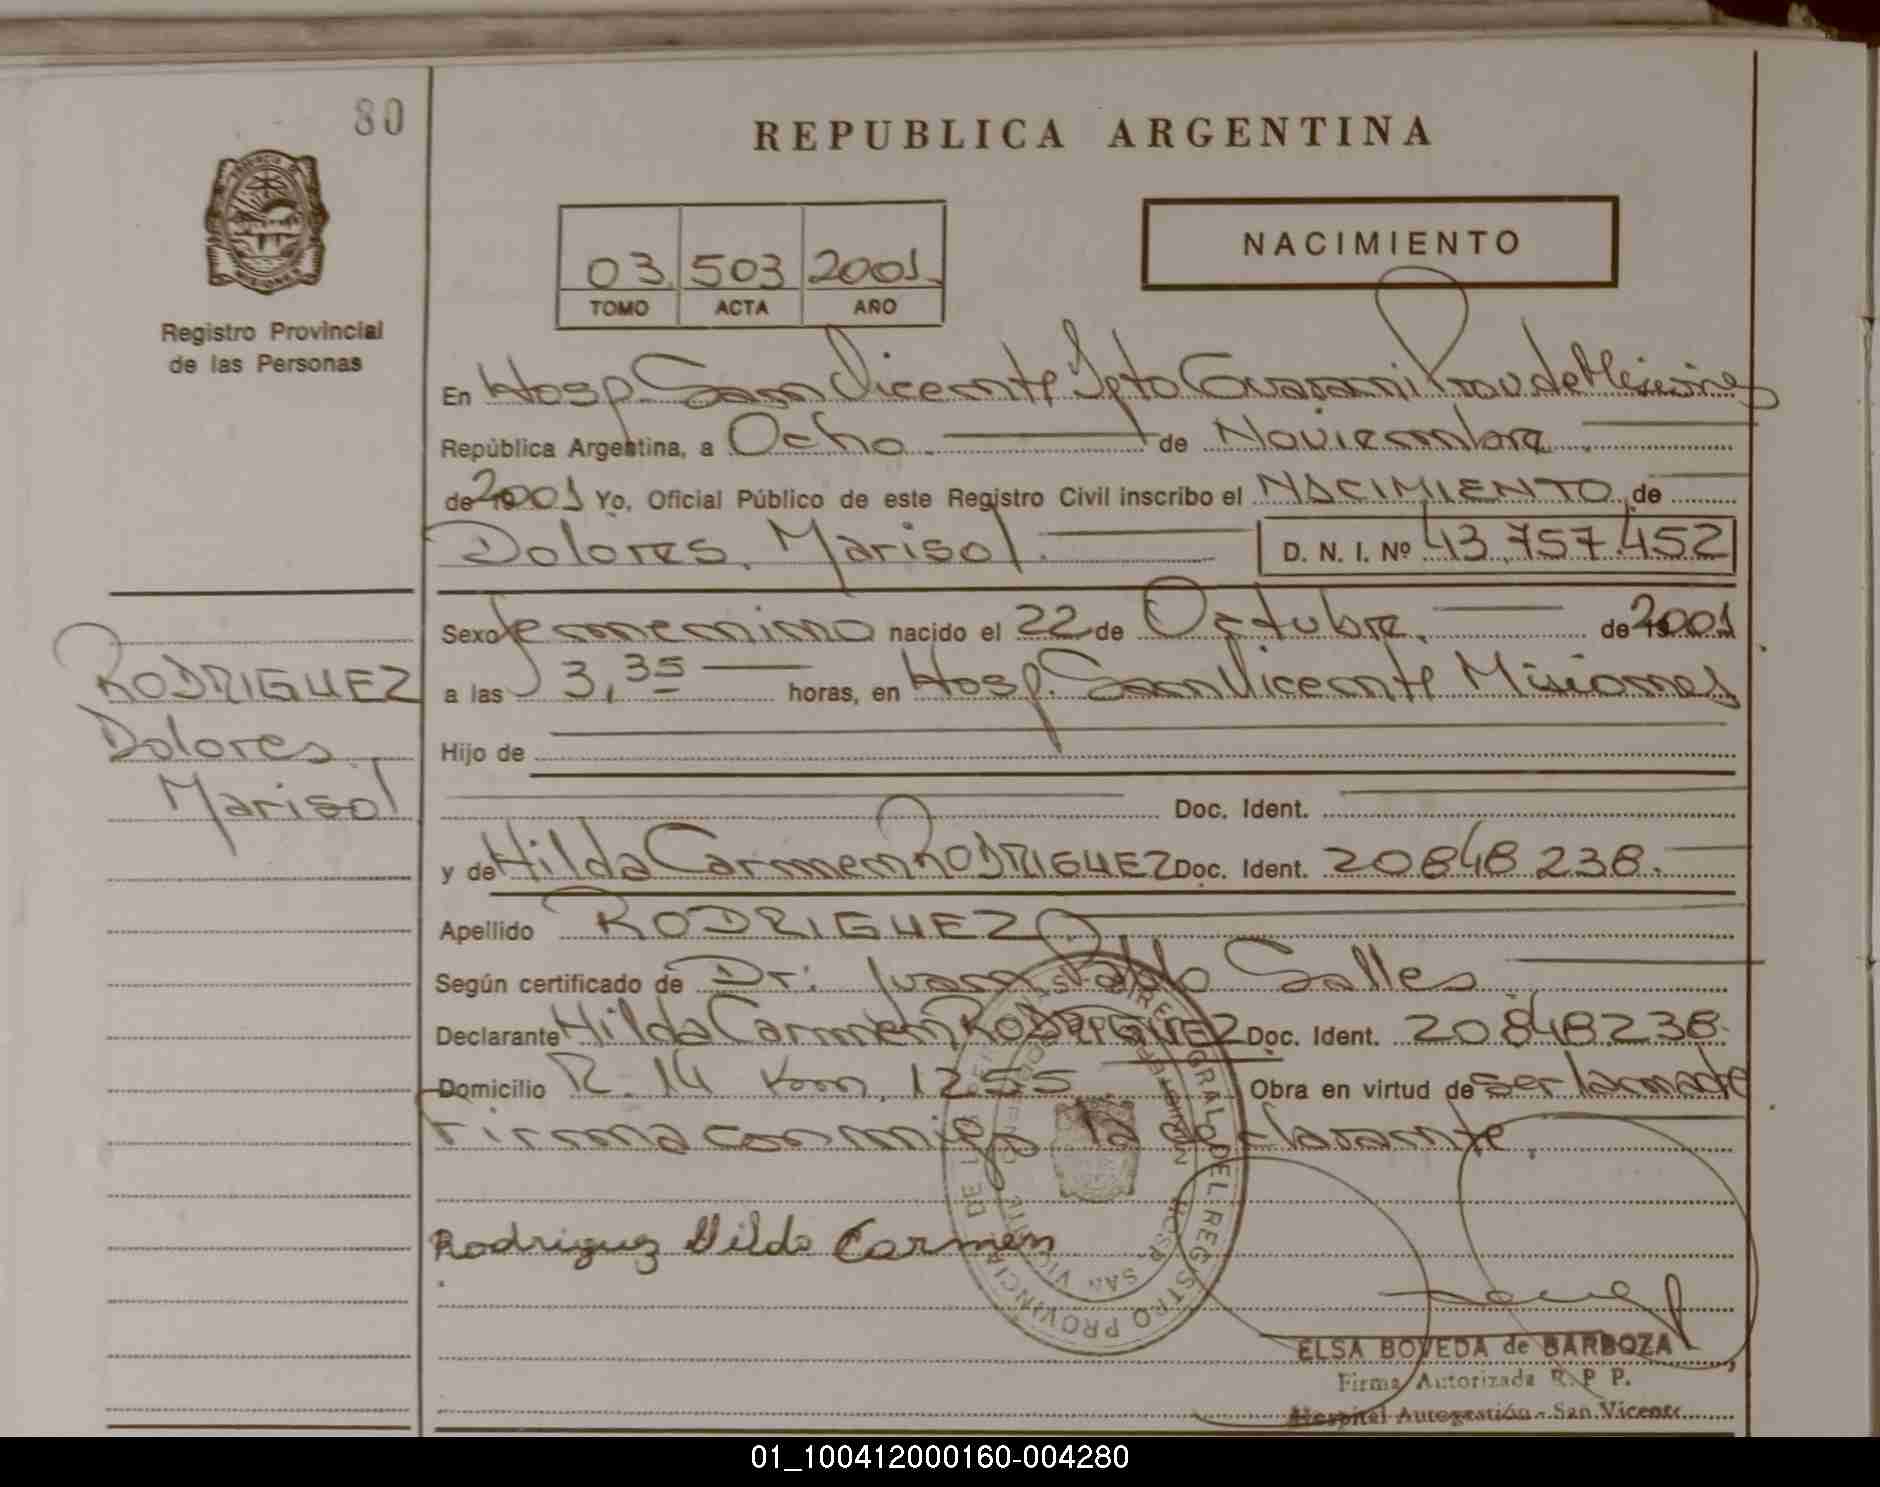 80
REPUBLICA ARGENTINA
03 503 2001
TOMO ACTA AÑO
NACIMIENTO
Registro Provincial
de las Personas
En Hosp. San Vicente Dpto Guarani Prov de Misiones
República Argentina, a Ocho de Noviembre
de 2001 Yo, Oficial Público de este Registro Civil inscribo el NACIMIENTO de
Dolores Marisol D. N. I. Nº 43.757.452
Sexo femenino nacido el 22 de Octubre de 2001
RODRIGUEZ
Dolores
Marisol
a las 3,35 horas, en Hosp. San Vicente Misiones
Hijo de
Doc. Ident.
y de Hilda Carmen RODRIGUEZ Doc. Ident. 20848238.
Apellido RODRIGUEZ
Según certificado de Dr: Juan Pablo Salles
Declarante Hilda Carmen RODRIGUEZ Doc. Ident. 20848238.
Domicilio R. 14 Km. 1255 Obra en virtud de ser la madre
Firma conmigo la declarante.
Rodriguez Hilda Carmen
DIREC GRAL DEL REGISTRO PROVINCIAL DE
HOSP. SAN VICENTE
MISIONES
ELSA BOVEDA de BARBOZA
Firma Autorizada R. P. P.
Hospital Autogestión - San Vicente
01_100412000160-004280